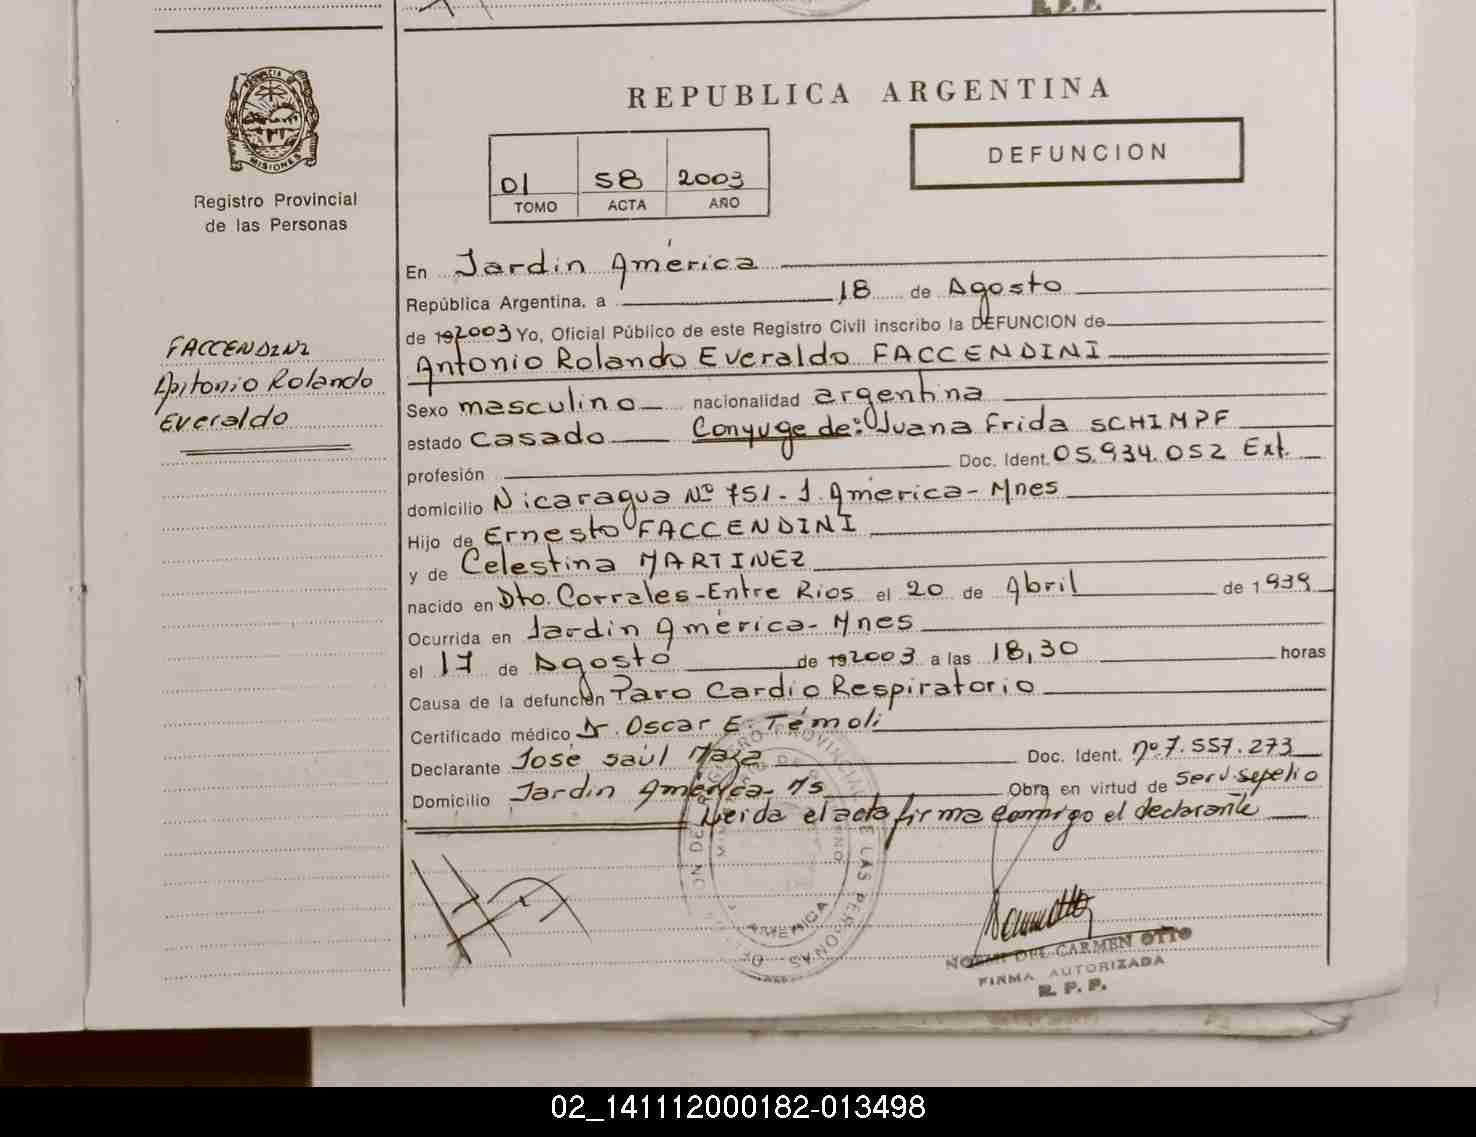 PROVINCIA DE
MISIONES
Registro Provincial
de las Personas
FACCENDINI
Antonio Rolando
Everaldo
REPUBLICA ARGENTINA
01 58 2003
TOMO ACTA AÑO
DEFUNCION
En Jardin América
República Argentina, a 18 de Agosto
de 192003 Yo, Oficial Público de este Registro Civil inscribo la DEFUNCION de
Antonio Rolando Everaldo FACCENDINI
Sexo masculino nacionalidad argentina
estado casado Conyuge de: Juana Frida SCHIMPF
profesión Doc. Ident. 05.934.052 Ext.
domicilio Nicaragua Nº 751 - J. América - Mnes
Hijo de Ernesto FACCENDINI
y de Celestina MARTINEZ
nacido en Dto. Corrales - Entre Rios el 20 de Abril de 1939
Ocurrida en Jardin América - Mnes
el 17 de Agosto de 192003 a las 18,30 horas
Causa de la defunción Paro Cardio Respiratorio
Certificado médico Dr. Oscar E. Témoli
Declarante José saúl Doc. Ident. nº 7.557.273
Domicilio Jardin América - Ms Obra en virtud de Serv. sepelio
Leida el acta firma conmigo el declarante
NORMA DEL CARMEN OTTO
FIRMA AUTORIZADA
R. P. P.
02_141112000182-013498